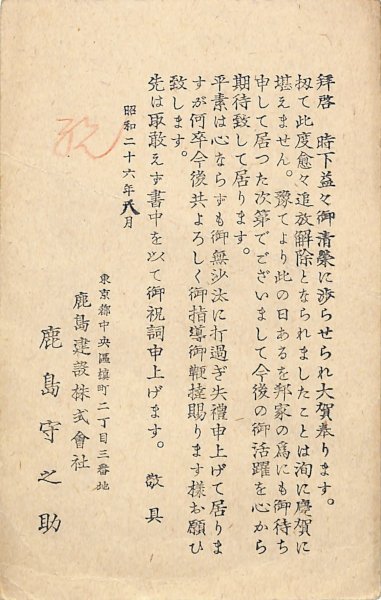 拝啓　時下益々御清榮に渉らせられ大賀奉ります。
扨て此度愈々追放解除となられましたことは洵に慶賀に
堪えません。豫てより此の日あるを邦家の爲にも御待ち
申して居つた次第でございまして今後の御活躍を心から
期待致して居ります。
平素は心ならずも御無沙汰に打過ぎ失禮申上げて居りま
すが何卒今後共よろしく御指導御鞭撻賜ります様お願ひ
致します。
先は取敢えず書中を以て御祝詞申上げます。　敬具
昭和二十六年八月
東京都中央區槇町二丁目三番地
鹿島建設株式會社
鹿島守之助